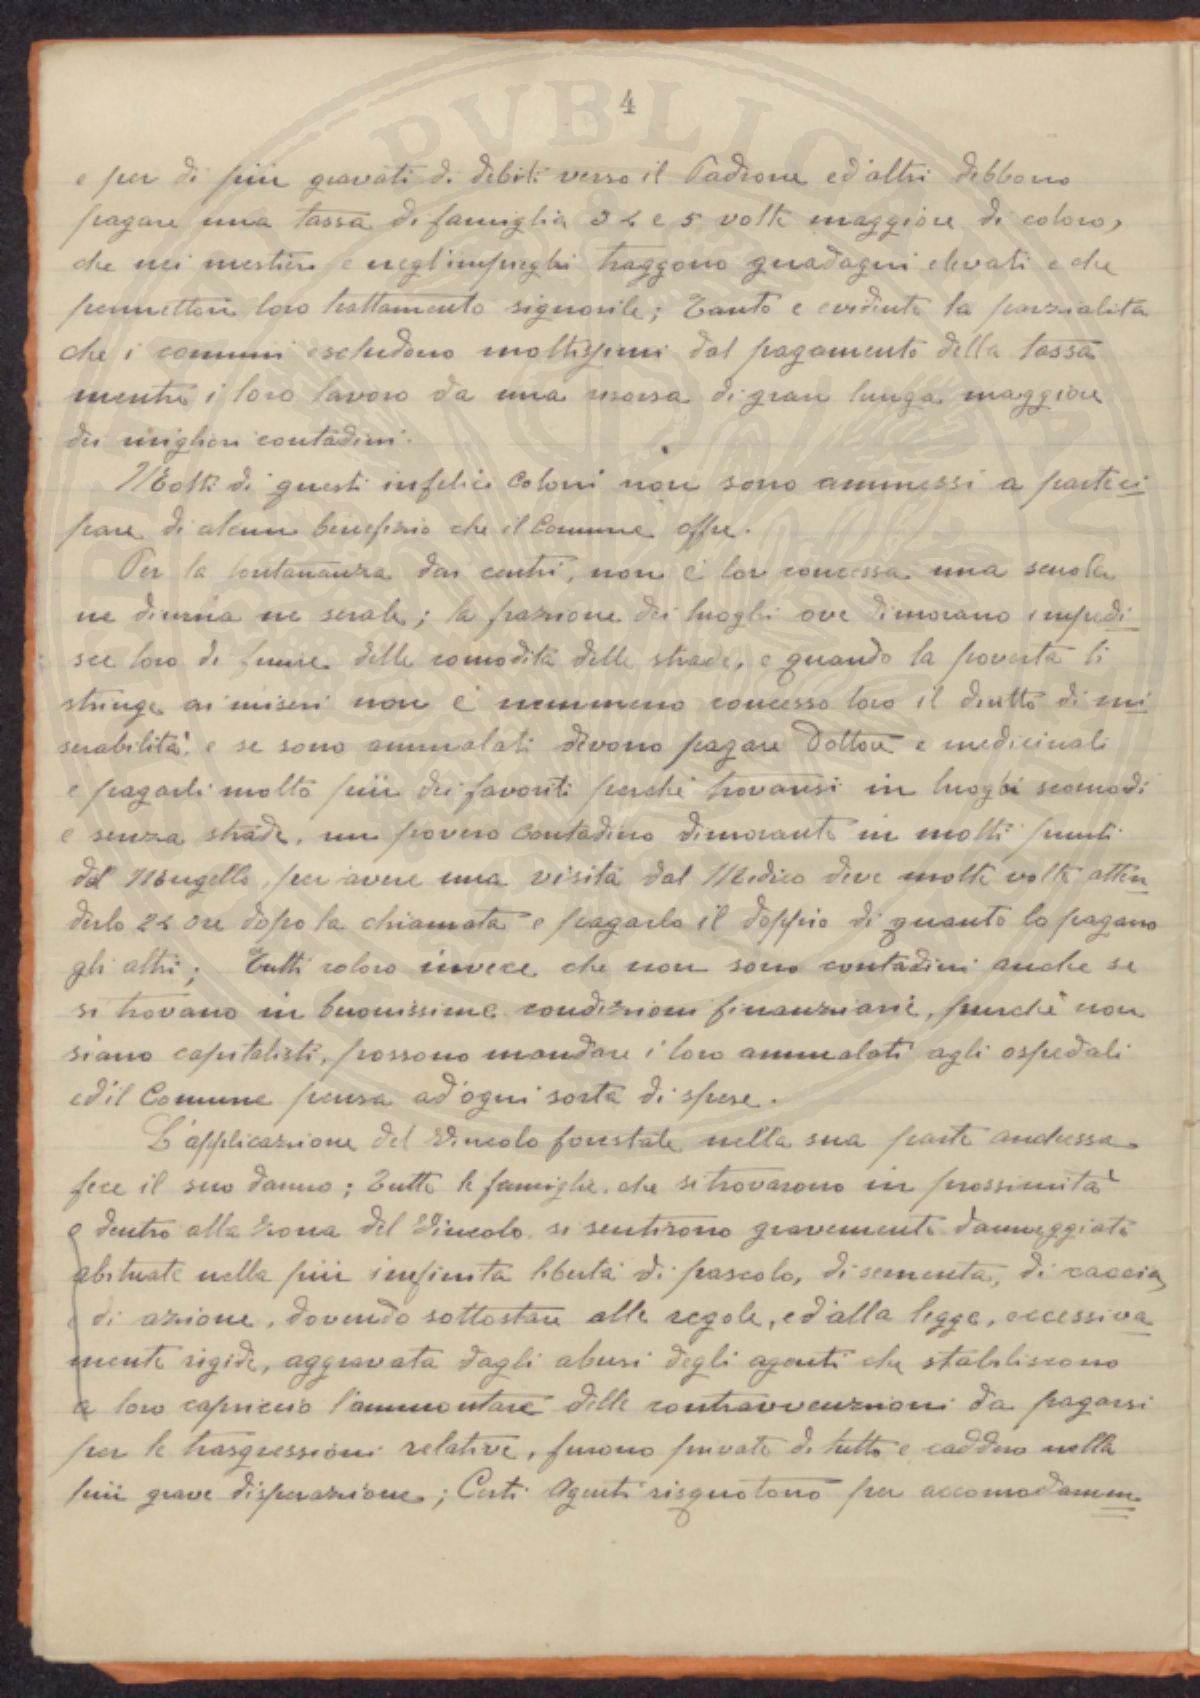 4
e per di più gravati di debiti verso il Padrone ed altri debbono
pagare una tassa di famiglia 3 4 e 5 volte maggiore di coloro,
che nei mestieri e negl'impieghi traggono guadagni elevati e che
permetton loro trattamento signorile; Tanto e evidente la parzialità
che i comuni escludono moltissimi dal pagamento della tassa
mentre i loro lavoro da una risorsa di gran lunga maggiore
dei migliori contadini.
Molti di questi infelici coloni non sono ammessi a parteci
pare di alcun benefizio che il Comune offre.
Per la lontananza dai centri, non è lor concessa una scuola
ne diurna ne serale; la posizione dei luoghi ove dimorano impedi
sce loro di fruire delle comodità delle strade, e quando la povertà li
stringe ai miseri non è nemmeno concesso loro il diritto di mi
serabilità: e se sono ammalati devono pagare Dottore e medicinali
e pagarli molto più dei favoriti perchè trovansi in luoghi scomodi
e senza strade, un povero contadino dimorante in molti punti
del Mugello, per avere una visita dal Medico deve molte volte atten
derlo 24 ore dopo la chiamata e pagarlo il doppio di quanto lo pagano
gli altri; Tutti coloro invece che non sono contadini anche se
si trovano in buonissime condizioni finanziarie, purchè non
siano capitalisti, possono mandare i loro ammalati agli ospedali
ed il Comune pensa ad ogni sorta di spese.
L'applicazione del Vincolo forestale nella sua parte anchessa
fece il suo danno; Tutte le famiglie che si trovarono in prossimità
e dentro alla zona del Vincolo si sentirono gravemente danneggiate
abituate nella più infinita libertà di pascolo, di sementa, di caccia,
e di azione, dovendo sottostare alle regole, ed alla legge, eccessiva
mente rigide, aggravata dagli abusi degli agenti che stabiliscono
a loro capriccio l'ammontare delle contravvenzioni da pagarsi
per le trasgressioni relative, furono private di tutto e caddero nella
più grave disperazione; Certi Agenti risquotono per accomodamen